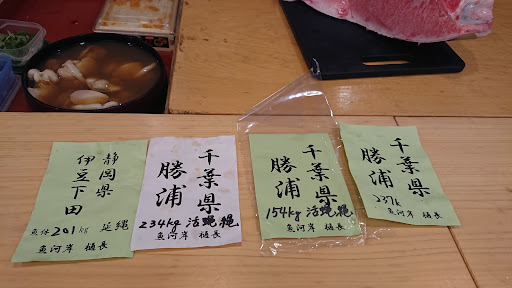 静岡県
伊豆下田
魚体201kg 延縄
魚河岸 樋長
千葉県
勝浦
234kg 活縄
魚河岸 樋長
千葉県
勝浦
154kg 活縄
魚河岸 樋長
千葉県
勝浦
237k
魚河岸 樋長